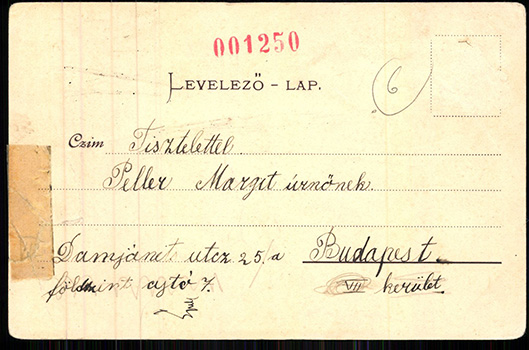 001250
6
LEVELEZŐ - LAP.
Czim Tisztelettel
Peller Margit úrnőnek
Damjanit utcz 25./a Budapest
földszint ajtó 7. VII kerület